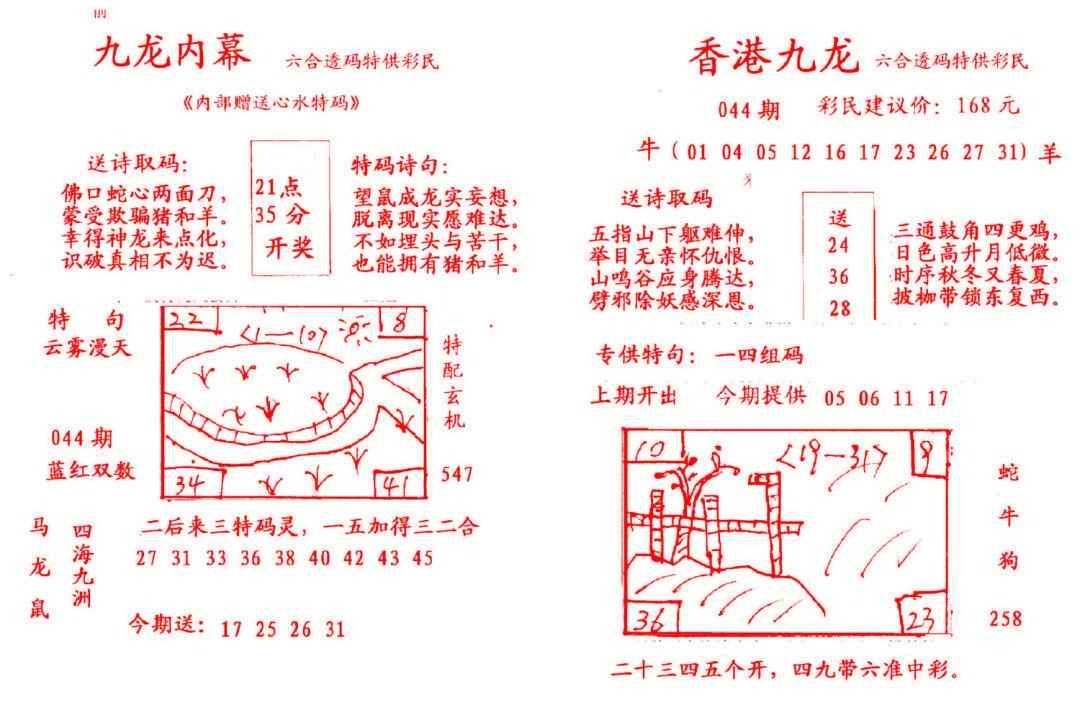 九龙内幕 六合透码特供彩民
《内部赠送心水特码》
送诗取码:
佛口蛇心两面刀,
蒙受欺骗猪和羊。
幸得神龙来点化,
识破真相不为迟。
21点
35分
开奖
特码诗句:
望鼠成龙实妄想,
脱离现实愿难达。
不如埋头与苦干,
也能拥有猪和羊。
特 句
云雾漫天
044期
蓝红双数
22
8
34
41
特配玄机
547
马龙鼠
四海九洲
二后来三特码灵,一五加得三二合
27 31 33 36 38 40 42 43 45
今期送: 17 25 26 31
香港九龙 六合透码特供彩民
044期 彩民建议价: 168元
牛(01 04 05 12 16 17 23 26 27 31)羊
送诗取码
五指山下躯难伸,
举目无亲怀仇恨。
山鸣谷应身腾达,
劈邪除妖感深恩。
送
24
36
28
三通鼓角四更鸡,
日色高升月低微。
时序秋冬又春夏,
披枷带锁东复西。
专供特句: 一四组码
上期开出 今期提供 05 06 11 17
10
<19—31>
9
36
23
蛇
牛
狗
258
二十三四五个开,四九带六准中彩。